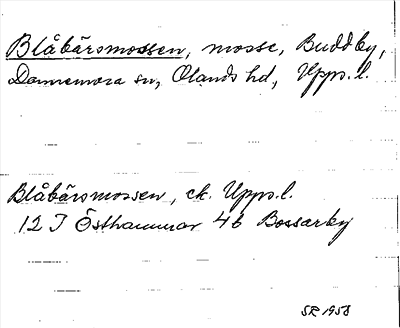 Blåbärsmossen, mosse, Buddby,
Dannemora sn, Olands hd, Upps.l.
Blåbärsmossen, ek. Upps.l.
12 I Östhammar 4b Bossarby
SR 1958